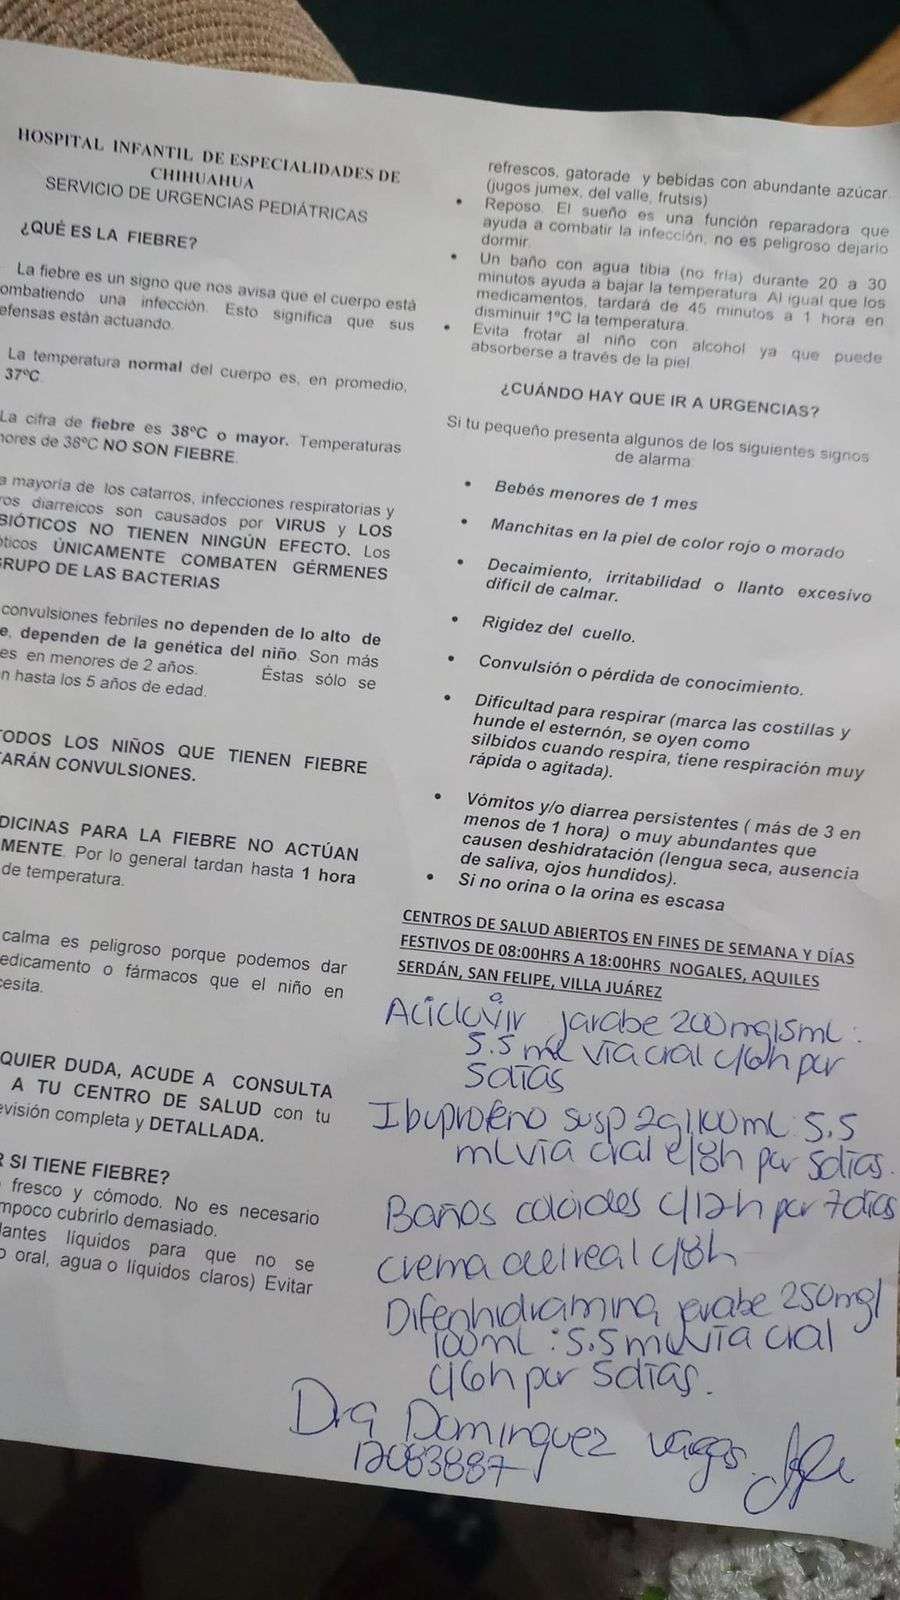 HOSPITAL INFANTIL DE ESPECIALIDADES DE
CHIHUAHUA
SERVICIO DE URGENCIAS PEDIÁTRICAS
¿QUÉ ES LA FIEBRE?
La fiebre es un signo que nos avisa que el cuerpo está
ombatiendo una infección. Esto significa que sus
efensas están actuando.
La temperatura normal del cuerpo es, en promedio,
37ºC.
La cifra de fiebre es 38ºC o mayor. Temperaturas
nores de 38ºC NO SON FIEBRE.
a mayoría de los catarros, infecciones respiratorias y
ros diarreicos son causados por VIRUS y LOS
BIÓTICOS NO TIENEN NINGÚN EFECTO. Los
óticos ÚNICAMENTE COMBATEN GÉRMENES
GRUPO DE LAS BACTERIAS
convulsiones febriles no dependen de lo alto de
e, dependen de la genética del niño. Son más
es en menores de 2 años. Éstas sólo se
n hasta los 5 años de edad.
TODOS LOS NIÑOS QUE TIENEN FIEBRE
TARÁN CONVULSIONES.
DICINAS PARA LA FIEBRE NO ACTÚAN
MENTE. Por lo general tardan hasta 1 hora
de temperatura.
calma es peligroso porque podemos dar
edicamento o fármacos que el niño en
cesita.
QUIER DUDA, ACUDE A CONSULTA
A TU CENTRO DE SALUD con tu
evisión completa y DETALLADA.
R SI TIENE FIEBRE?
fresco y cómodo. No es necesario
mpoco cubrirlo demasiado.
dantes líquidos para que no se
o oral, agua o líquidos claros) Evitar
refrescos, gatorade y bebidas con abundante azúcar
(jugos jumex, del valle, frutsis)
• Reposo. El sueño es una función reparadora que
ayuda a combatir la infección, no es peligroso dejarlo
dormir.
• Un baño con agua tibia (no fría) durante 20 a 30
minutos ayuda a bajar la temperatura. Al igual que los
medicamentos, tardará de 45 minutos a 1 hora en
disminuir 1ºC la temperatura.
• Evita frotar al niño con alcohol ya que puede
absorberse a través de la piel
¿CUÁNDO HAY QUE IR A URGENCIAS?
Si tu pequeño presenta algunos de los siguientes signos
de alarma:
• Bebés menores de 1 mes
• Manchitas en la piel de color rojo o morado
• Decaimiento, irritabilidad o llanto excesivo
dificil de calmar.
• Rigidez del cuello.
• Convulsión o pérdida de conocimiento.
• Dificultad para respirar (marca las costillas y
hunde el esternón, se oyen como
silbidos cuando respira, tiene respiración muy
rápida o agitada).
• Vómitos y/o diarrea persistentes ( más de 3 en
menos de 1 hora) o muy abundantes que
causen deshidratación (lengua seca, ausencia
de saliva, ojos hundidos).
• Si no orina o la orina es escasa
CENTROS DE SALUD ABIERTOS EN FINES DE SEMANA Y DÍAS
FESTIVOS DE 08:00HRS A 18:00HRS NOGALES, AQUILES
SERDÁN, SAN FELIPE, VILLA JUÁREZ
Aciclovir jarabe 200mg/5mL:
5.5 mL vía oral c/6h por
5días
Ibuprofeno susp 2g/100mL: 5.5
mL vía oral c/8h por 5días.
Baños coloides c/12h por 7días
crema del real c/8h
Difenhidramina jarabe 250mg/
100mL: 5.5 mL vía oral
c/6h por 5días.
Dra Dominguez Vargas
12083887